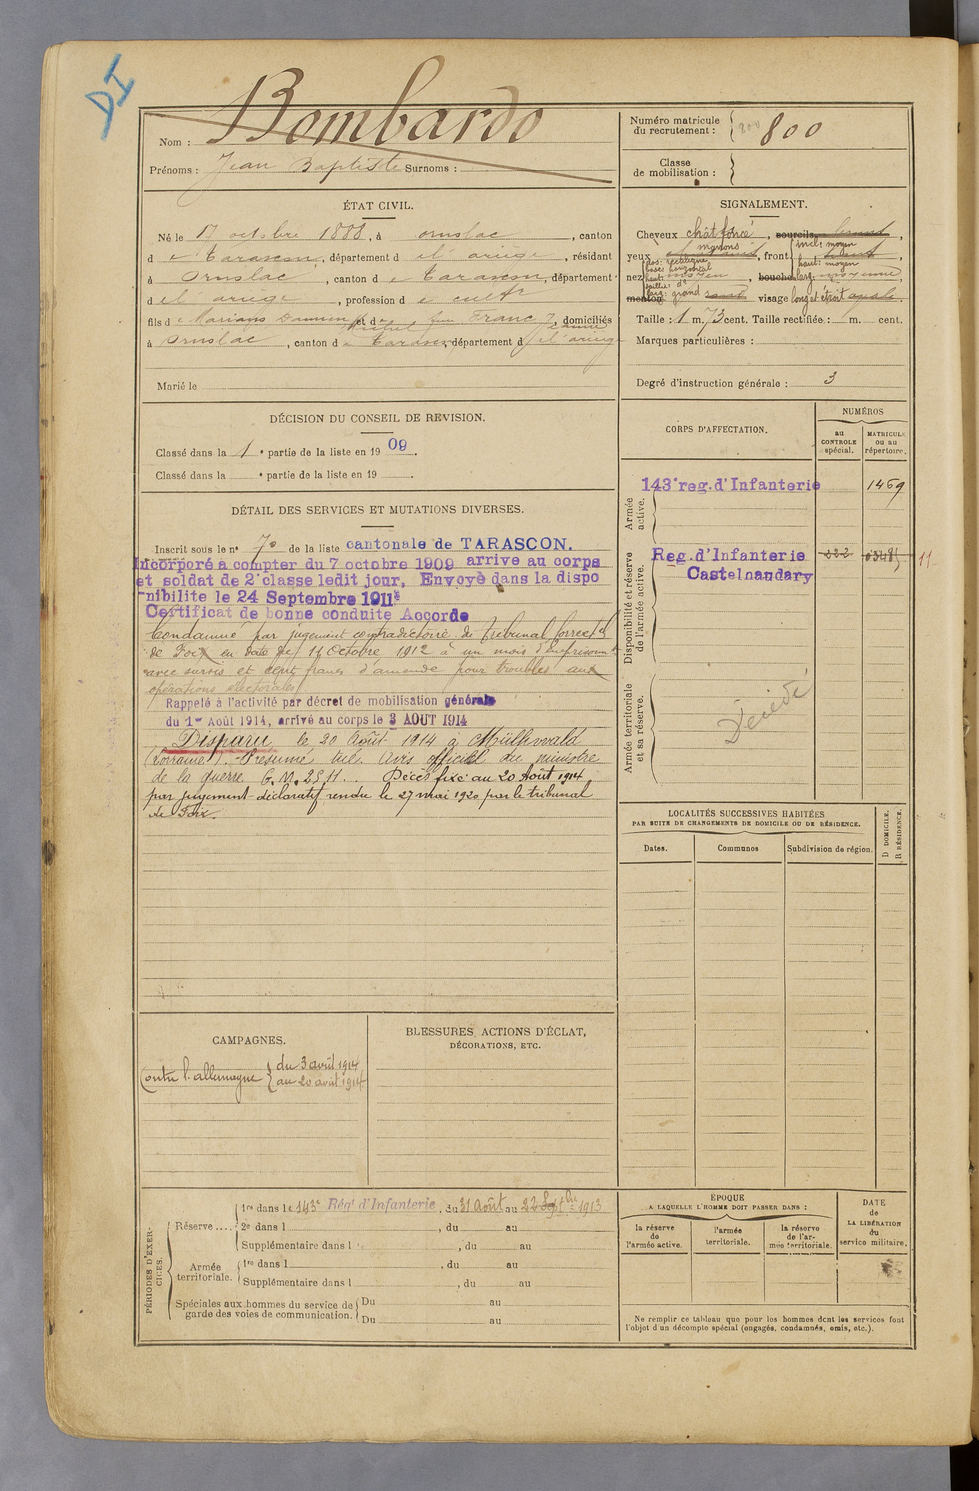 DI
Nom : Bombardo
Prénoms : Jean Baptiste Surnoms :
Numéro matricule
du recrutement : 800 800
Classe
de mobilisation :
ÉTAT CIVIL.
Né le 17 octobre 1888, à Ornolac, canton
d e Tarascon, département d el ariège, résidant
à Ornolac, canton d e Tarascon, département
d el ariège, profession d e cultr
fils d e Marians et d e Franc Jeanne, domiciliés
à Ornolac, canton d e Tarascon, département d el'ariège
Marié le
SIGNALEMENT.
Cheveux chât foncé, sourcils
yeux, front incl: moyen haut: moyen
nez dos: rectiligne base: horizontal haut: moyen, bouche larg: moyenne
menton larg: grand visage long et étroit ovale.
Taille : 1 m. 73 cent. Taille rectifiée : m. cent.
Marques particulières :
Degré d'instruction générale : 3
DÉCISION DU CONSEIL DE REVISION.
Classé dans la 1 e partie de la liste en 19 09.
Classé dans la e partie de la liste en 19 .
DÉTAIL DES SERVICES ET MUTATIONS DIVERSES.
Inscrit sous le n° 70 de la liste cantonale de TARASCON.
Incorporé à compter du 7 octobre 1909 arrive au corps
et soldat de 2e classe ledit jour, Envoyé dans la dispo
nibilite le 24 Septembre 1911
Certificat de bonne conduite Accorde
Condamné par jugement contradictoire du Tribunal Correctel
de Foix en date du 11 Octobre 1912 à un mois d'Emprisonnt
avec sursis et cent francs d'amende pour troubles aux
opérations électorales
Rappelé à l'activité par décret de mobilisation générale
du 1er Août 1914, arrivé au corps le 3 AOUT 1914
Disparu le 20 Août 1914 à Mülhwald
(Lorraine). Présumé tué. Avis officiel du ministre
de la guerre G.M. 2511. Décès fixé au 20 Août 1914
par jugement déclaratif rendu le 27 mai 1920 par le tribunal
de Foix.
CORPS D'AFFECTATION.
NUMÉROS
au
CONTROLE
spécial.
MATRICULE
ou au
répertoire.
Armée
active.
143e reg. d'Infanterie 1469
Disponibilité et réserve
de l'armée active.
Reg. d'Infanterie 222 11
Castelnaudary
Armée territoriale
et sa réserve.
Décédé
LOCALITÉS SUCCESSIVES HABITÉES
PAR SUITE DE CHANGEMENTS DE DOMICILE OU DE RÉSIDENCE.
Dates. Communes Subdivision de région. D DOMICILE. R RÉSIDENCE.
CAMPAGNES.
Contre l'allemagne du 3 août 1914
au 20 août 1914
BLESSURES, ACTIONS D'ÉCLAT,
DÉCORATIONS, ETC.
PÉRIODES D'EXERCICES.
Réserve .... 1re dans le 143e Régt d'Infanterie, du 31 Août au 22 Septbre 1913
2e dans l , du au
Supplémentaire dans l , du au
Armée
territoriale. 1re dans l , du au
Supplémentaire dans l , du au
Spéciales aux hommes du service de
garde des voies de communication. Du au
Du au
ÉPOQUE
A LAQUELLE L'HOMME DOIT PASSER DANS :
la réserve
de
l'armée active.
l'armée
territoriale.
la réserve
de l'ar-
mée territoriale.
DATE
de
LA LIBÉRATION
du
service militaire.
Ne remplir ce tableau que pour les hommes dont les services font
l'objet d'un décompte spécial (engagés, condamnés, omis, etc.).